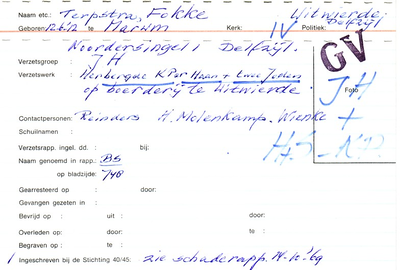 Naam etc.: Terpstra, Fokke Uitwierde-
Delfzijl
Geboren: 12.6.12 te Marum Kerk: IV Politiek:
Noordersingel 1 Delfzijl.
GV
Verzetsgroep : JH
Verzetswerk : Herbergde KPer Haan + twee Joden
op boerderij te Uitwierde.
Foto
JH
+
Contactpersonen: Reinders H. Molenkamp. Wienke
Schuilnaam :
Verzetsrapp. ingel. dd. : bij:
Naam genoemd in rapp.: BS
op bladzijde: 748
Gearresteerd op : door:
Gevangen gezeten in :
Bevrijd op : uit : door:
Overleden op: door: te :
Begraven op : te :
Ingeschreven bij de Stichting 40/45: zie schaderapp. 14-10-'69